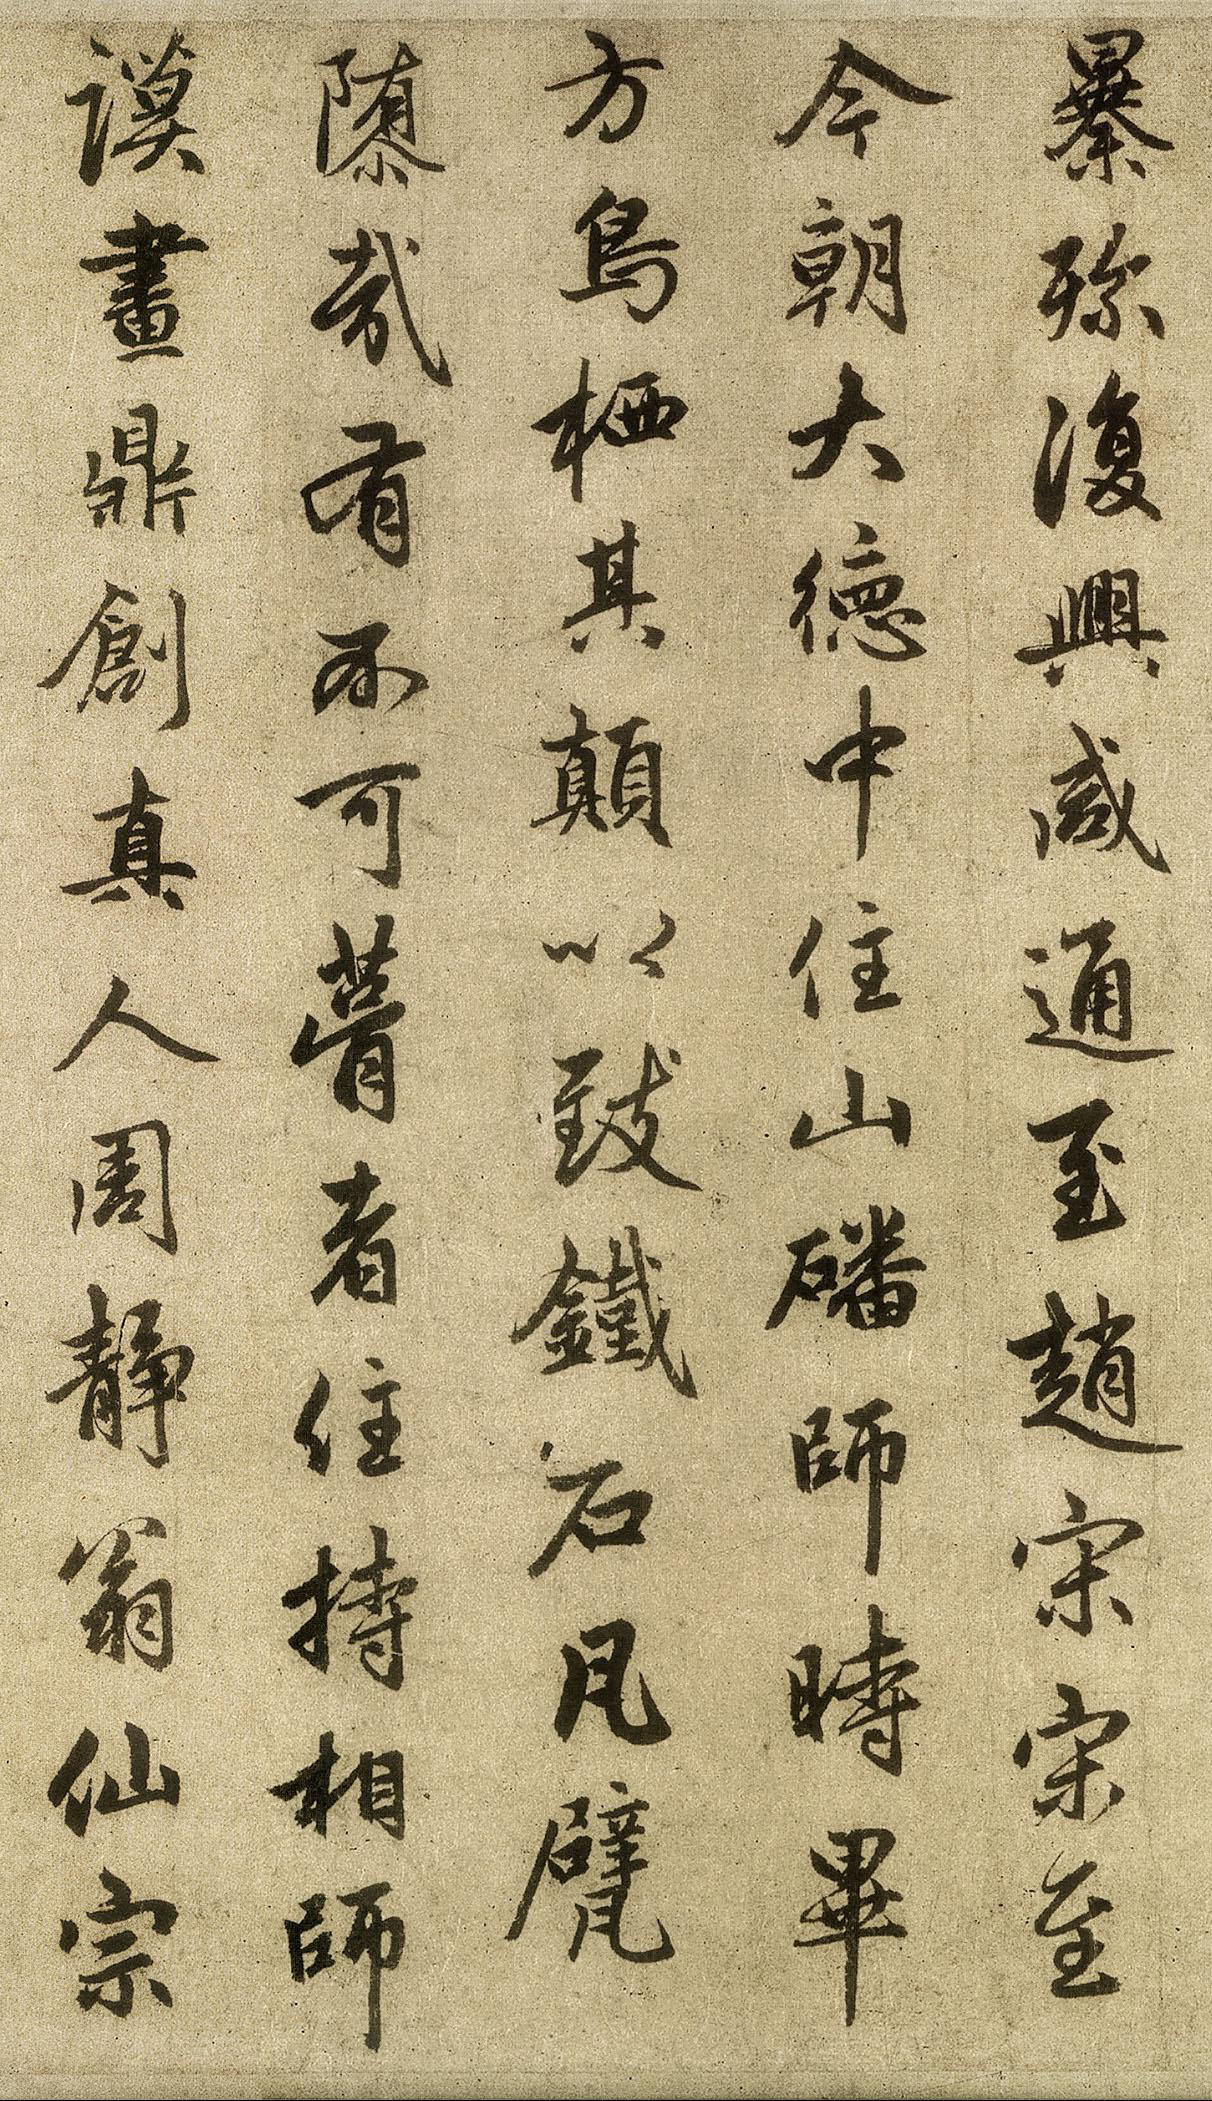 暴殄復興咸通至趙宋宋至
今朝大德中住山磻師時畢
方鳥栖其顛以致鐵石瓦甓
隳哉有不可瞢者住持相師
謨畫鼎創真人周靜翁仙宗